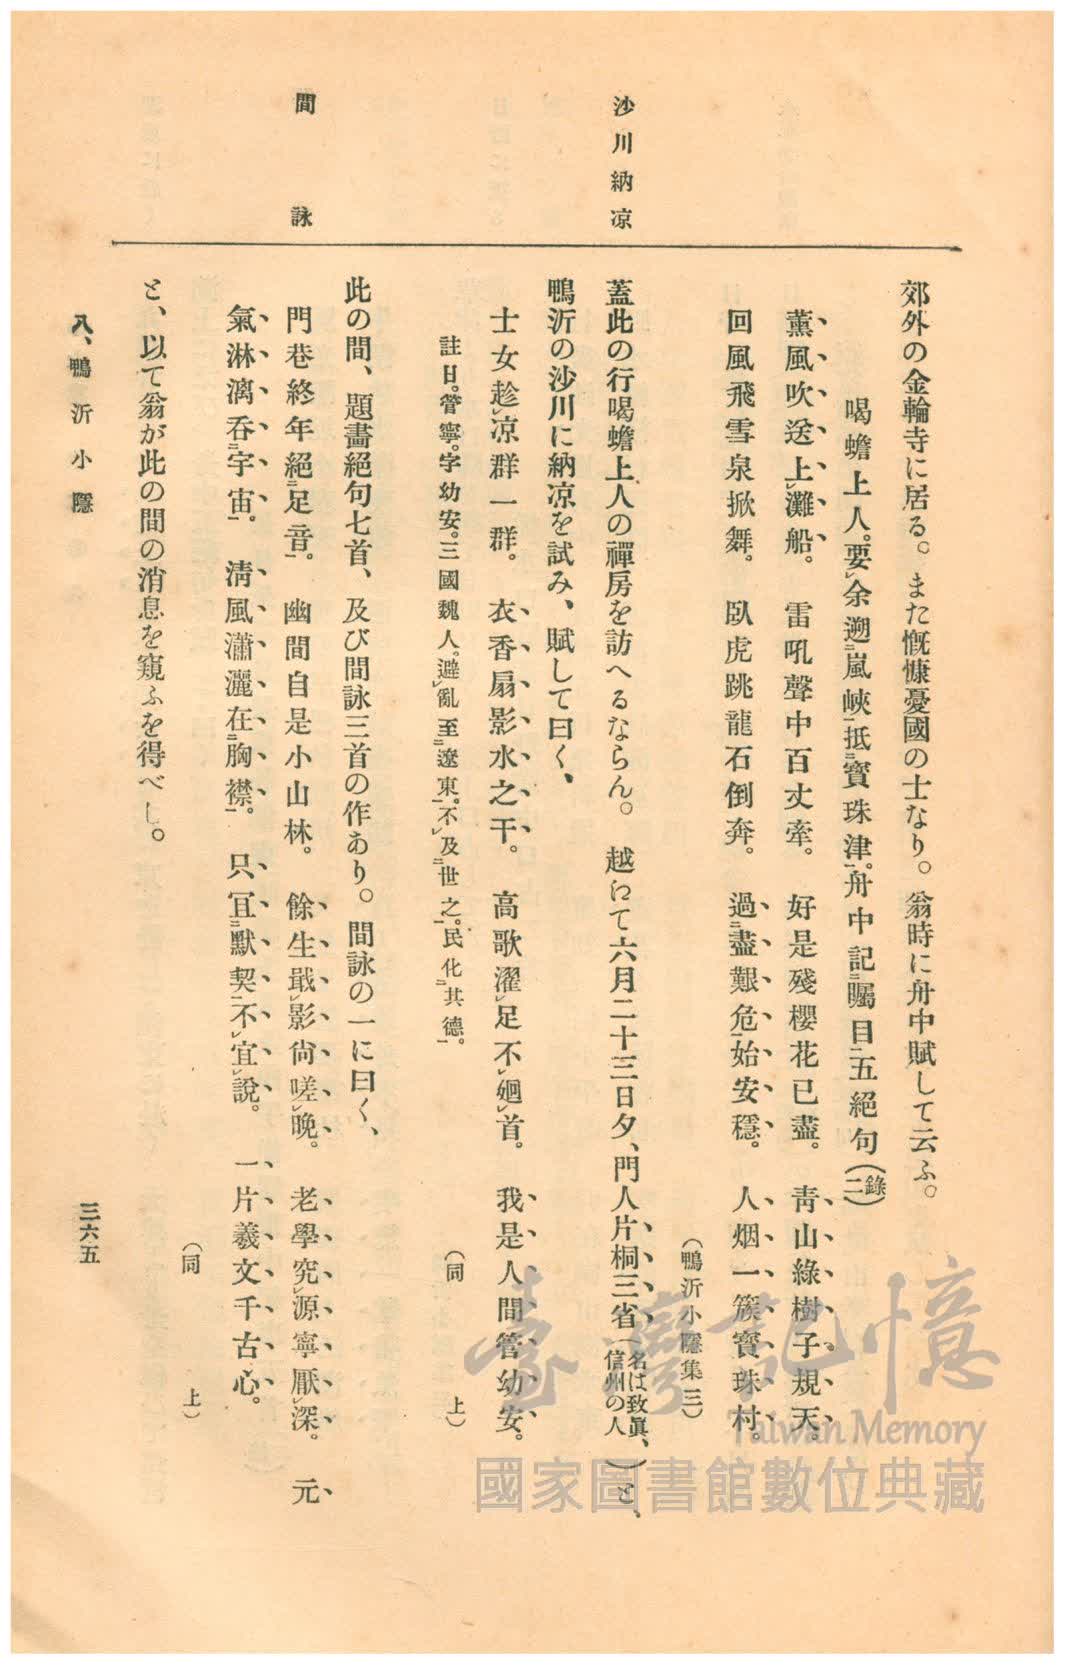 沙川納凉
間詠
郊外の金輪寺に居る。また慨慷憂國の士なり。翁時に舟中賦して云ふ。
喝蟾上人。要㆑余遡㆓嵐峽㆒抵㆓寶珠津㆒。舟中記㆓矚目㆒五絕句(錄二)
薰風吹送上㆑灘船。雷吼聲中百丈牽。好是殘櫻花已盡。靑山綠樹子規天。
回風飛雪泉掀舞。臥虎跳龍石倒奔。過㆓盡艱危㆒始安穩。人烟一簇寶珠村。
(鴨沂小隱集三)
蓋此の行喝蟾上人の禪房を訪へるならん。越ゎて六月二十三日夕、門人片桐三省(名は致眞、信州の人)と、
鴨沂の沙川に納凉を試み、賦して曰く、
士女趁㆑凉群一群。衣香扇影水之干。高歌濯㆑足不㆑廻㆑首。我是人間管幼安。
註曰。管寧。字幼安。三國魏人。避㆑亂至㆓遼東㆒。不㆑及㆓世之㆒。民化㆓其德㆒。
(同上)
此の間、題畵絕句七首、及び間詠三首の作あり。間詠の一に曰く、
門巷終年絕㆓足音㆒。幽間自是小山林。餘生戢㆑影尙嗟㆑晚。老學究㆑源寧厭㆑深。元
氣淋漓呑㆓宇宙㆒。淸風瀟灑在㆓胸襟㆒。只宜㆓默契㆒不㆑宜㆑說。一片羲文千古心。
(同上)
と、以て翁が此の間の消息を窺ふを得べし。
八、鴨沂小隱
三六五
臺灣記憶
Taiwan Memory
國家圖書館數位典藏